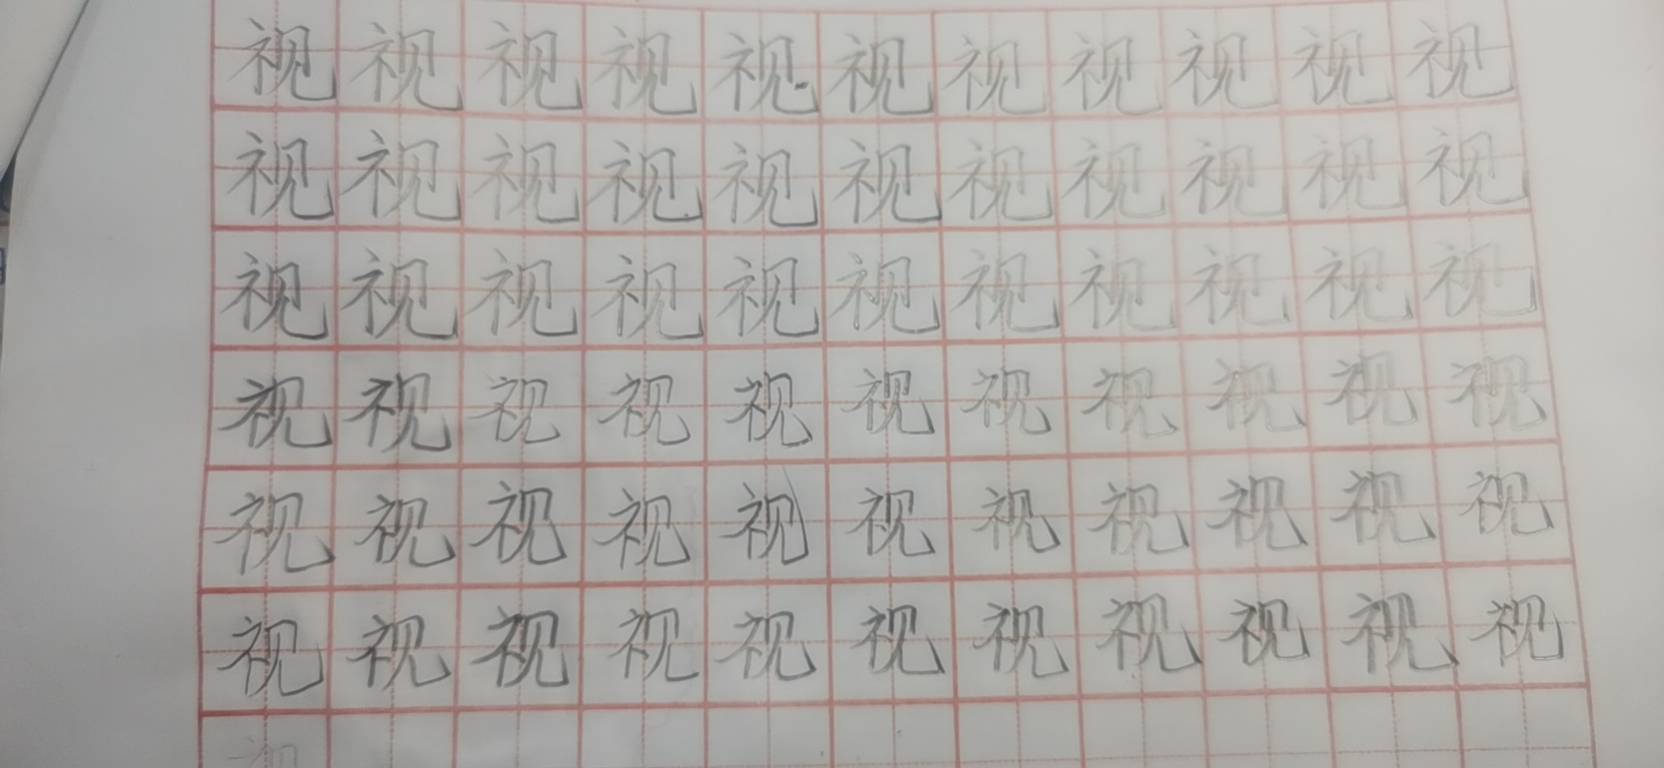 视视视视视视视视视视视
视视视视视视视视视视视
视视视视视视视视视视视
视视视视视视视视视视视
视视视视视视视视视视视
视视视视视视视视视视视